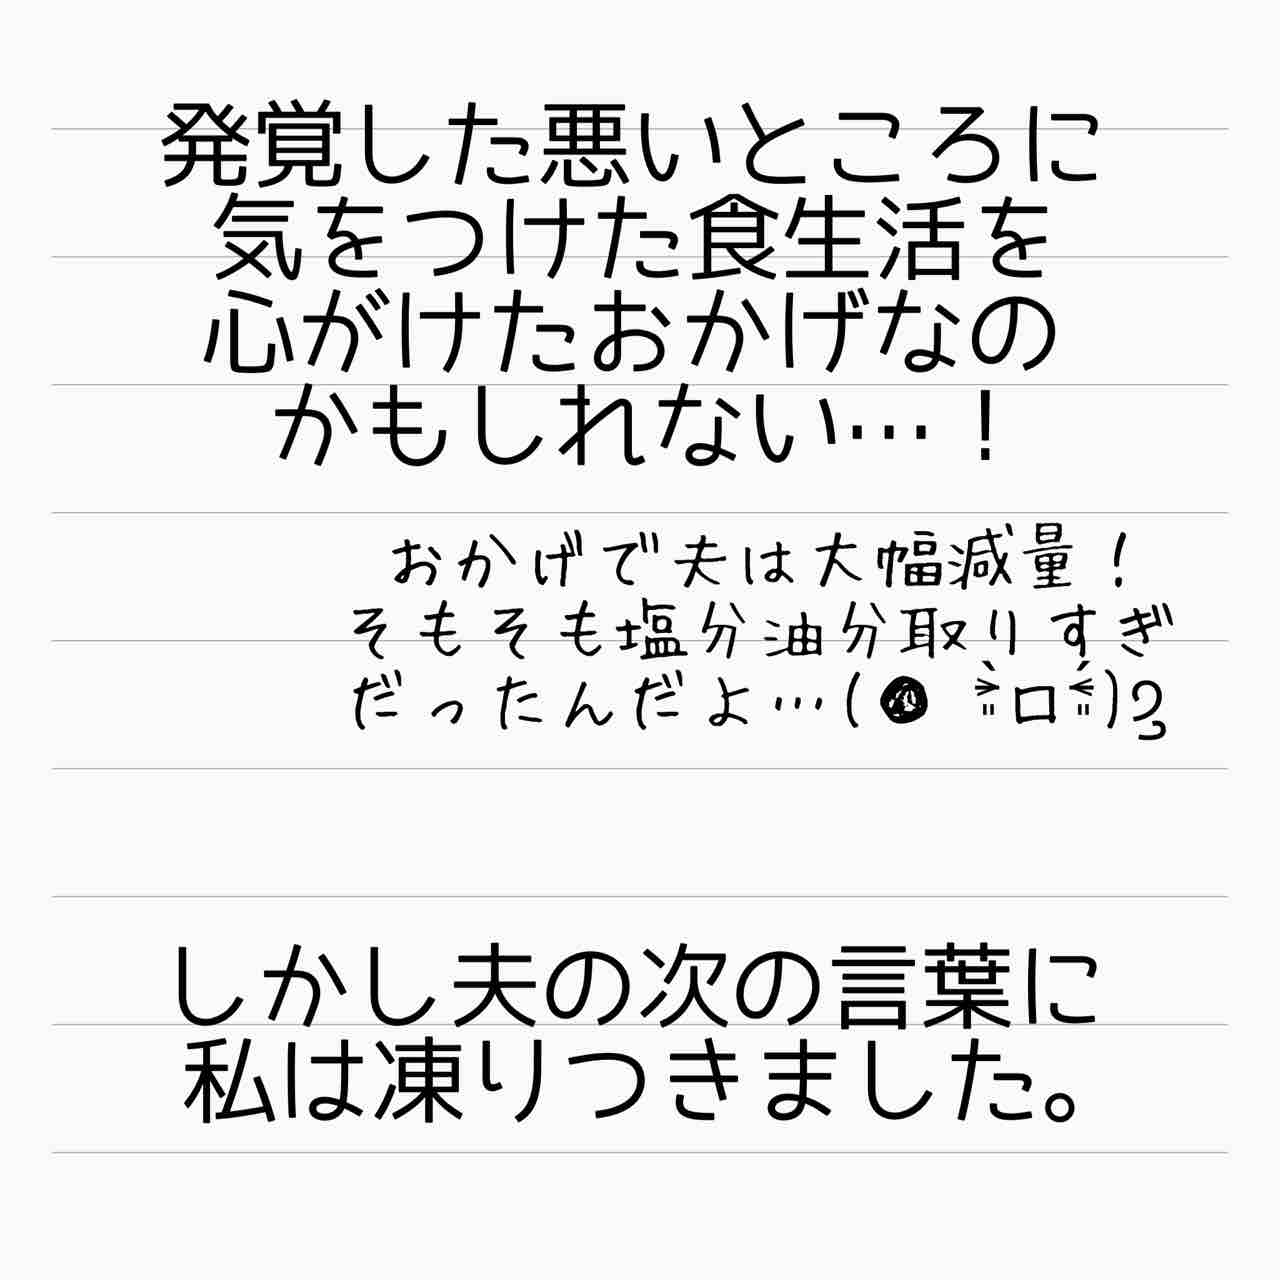 発覚した悪いところに
気をつけた食生活を
心がけたおかげなの
かもしれない…！
おかげで夫は大幅減量！
そもそも塩分油分取りすぎ
だったんだよ…(● ｀ﾛ´)
しかし夫の次の言葉に
私は凍りつきました。